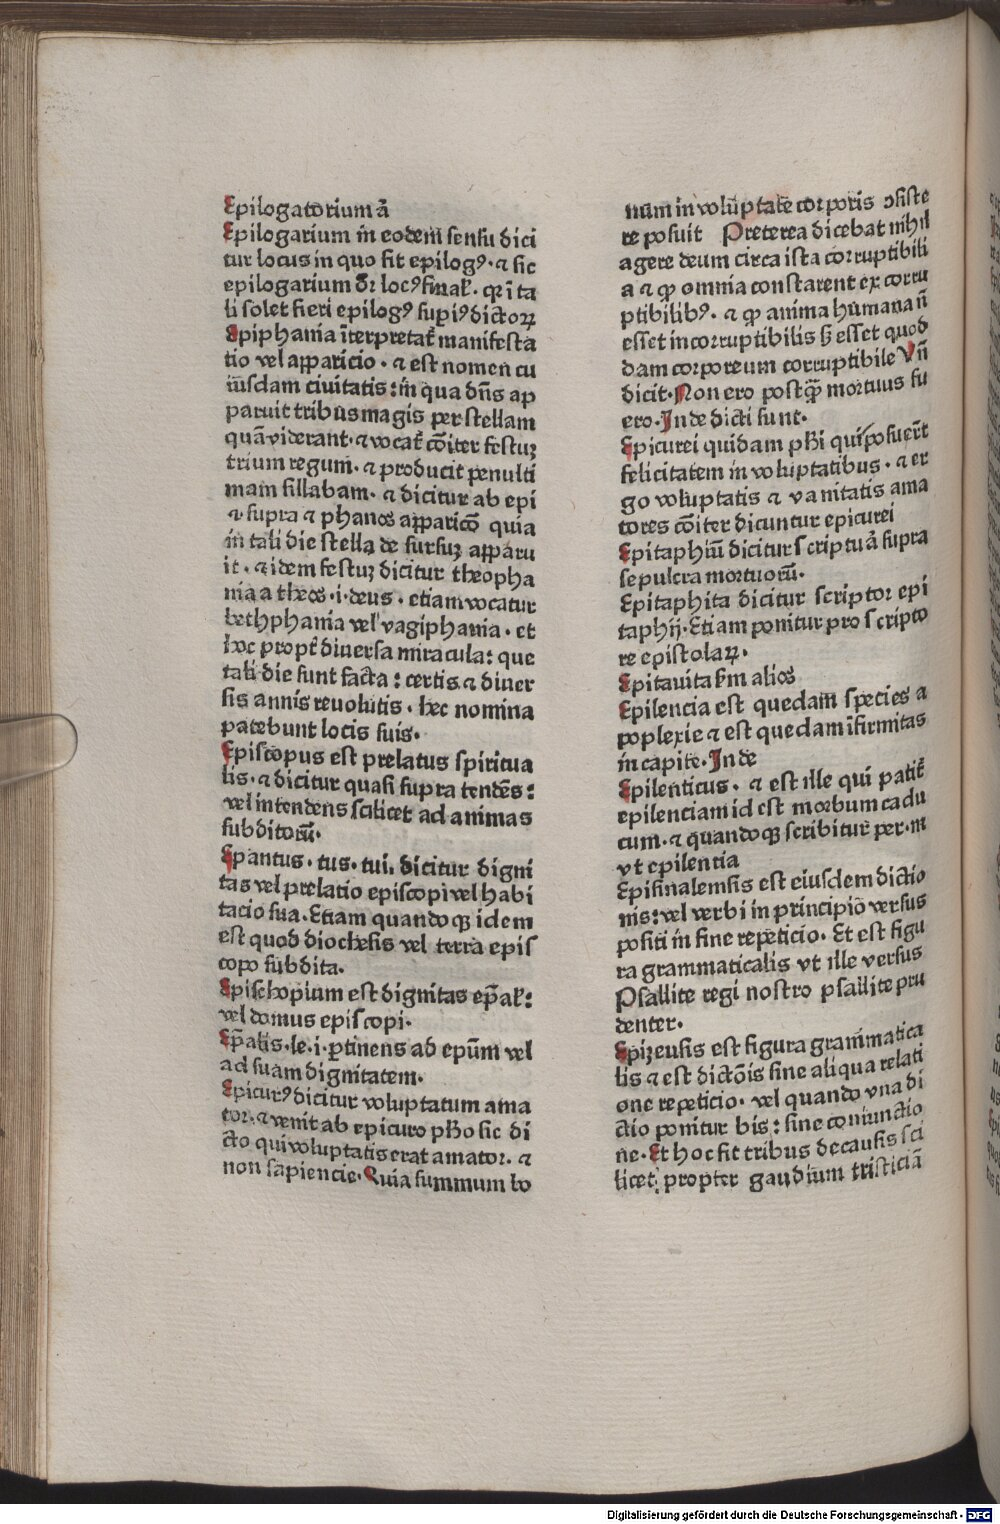 Epilogatorium ā
Epilogarium in eodem sensu dici
tur locus in quo fit epilogꝰ · ⁊ sic
epilogarium dr̄ locꝰ final̕ . qr̄ ī ta
li solet fieri epilogꝰ supiꝰ dictoꝝ
Epiphania īterpretat̕ manifesta
tio vel apparicio · ⁊ est nomen cu
iusdam ciuitatis : in qua dn̄s ap
paruit tribus magis per stellam
quā viderant · ⁊ vocat̕ cōiter festuꝫ
trium regum · ⁊ producit penulti
mam sillabam · ⁊ dicitur ab epi
⁊ supra ⁊ phanos apparicō quia
in tali die stella de sursuꝫ apparu
it · ⁊ idem festuꝫ dicitur theopha
nia a theos · i · deus · etiam vocatur
bethphania vel vagiphania · et
hoc propt̕ diuersa miracula : que
tali die sunt facta : certis ⁊ diuer
sis annis reuolutis · hec nomina
patebunt locis suis ·
Episcopus est prelatus spiritua
lis · ⁊ dicitur quasi supra tendēs :
vel intendens scilicet ad animas
subditorū ·
Epantus · tus · tui . dicitur digni
tas vel prelatio episcopi vel habi
tacio sua . Etiam quandoqꝫ idem
est quod diochesis vel terra epis
copo subdita ·
Epischopium est dignitas ep̄al̕ :
vel domus episcopi ·
Ep̄alis · le · i · ꝑtinens ad epūm vel
ad suam dignitatem ·
Epicurꝰ dicitur voluptatum ama
tor · ⁊ venit ab epicuro ph̄o sic di
cto qui voluptatis erat amator . ⁊
non sapiencie · Quia summum bo
num in voluptate corporis ɔsiste
re posuit Preterea dicebat nihil
agere deum circa ista corruptibili
a ⁊ ꝙ omnia constarent ex corru
ptibilibꝰ · ⁊ ꝙ anima humana n̄
esset incorruptibilis sꝫ esset quod
dam corporeum corruptibile Vn̄
dicit · Non ero postꝙ̄ mortuus fu
ero · Inde dicti sunt ·
Epicurei quidam ph̄i qui posuer̄t
felicitatem in voluptatibus · ⁊ er
go voluptatis ⁊ vanitatis ama
tores cōiter dicuntur epicurei
Epitaphiū dicitur scriptura supra
sepulcra mortuorū ·
Epitaphita dicitur scriptor epi
taphij · Etiam ponitur pro scripto
re epistolaꝝ ·
Epitauita s̄m alios
Epilencia est quedam species a
poplexie ⁊ est quedam īfirmitas
in capite · Inde
Epilenticus · ⁊ est ille qui patit̕
epilenciam id est morbum cadu
cum · ⁊ quandoqꝫ scribitur per · m
vt epilentia
Epifinalemsis est eiusdem dictio
nis : vel verbi in principio versus
positi in fine repeticio · Et est figu
ra grammaticalis vt ille versus
Psallite regi nostro psallite pru
denter ·
Epizeusis est figura grammatica
lis ⁊ est dictōis sine aliqua relati
one repeticio · vel quando vna di
ctio ponitur bis : sine coniunctio
ne · Et hoc fit tribus de causis sci
licet , propter gaudium tristiciā
Digitalisierung gefördert durch die Deutsche Forschungsgemeinschaft - DFG